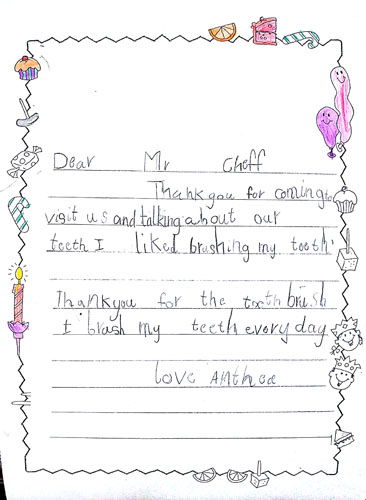 Dear Mr Cheff
Thankyou for coming to
visit us and talking about our
teeth I liked brushing my teeth
Thankyou for the toothbrush
I brush my teeth every day
love Anthea